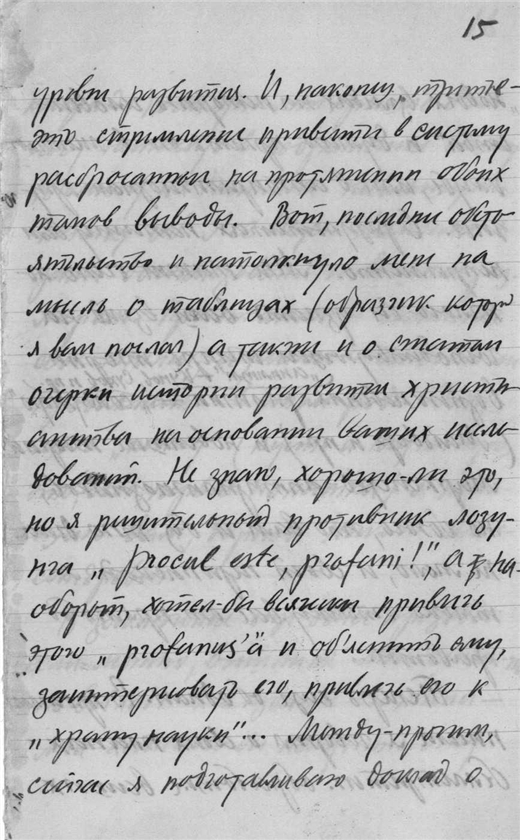 15
уровня развития. И, наконец, третье-
это стремление привести в систему
разбросанные на протяжении обоих
томов выводы. Вот, последнее обсто-
ятельство и натолкнуло меня на
мысль о таблицах (образчик которых
я вам послал) а также и о сжатом
очерке истории развития христи-
анства на основании Ваших иссле-
дований. Не знаю, хорошо-ли это,
но я решительный противник лозу-
нга „Procul este, profani!", а на-
оборот, хотел-бы всячески привлечь
этого „profanus'а" и объяснить ему,
заинтересовать его, привлечь его к
„храму науки"... Между-прочим,
сейчас я подготавливаю доклад о